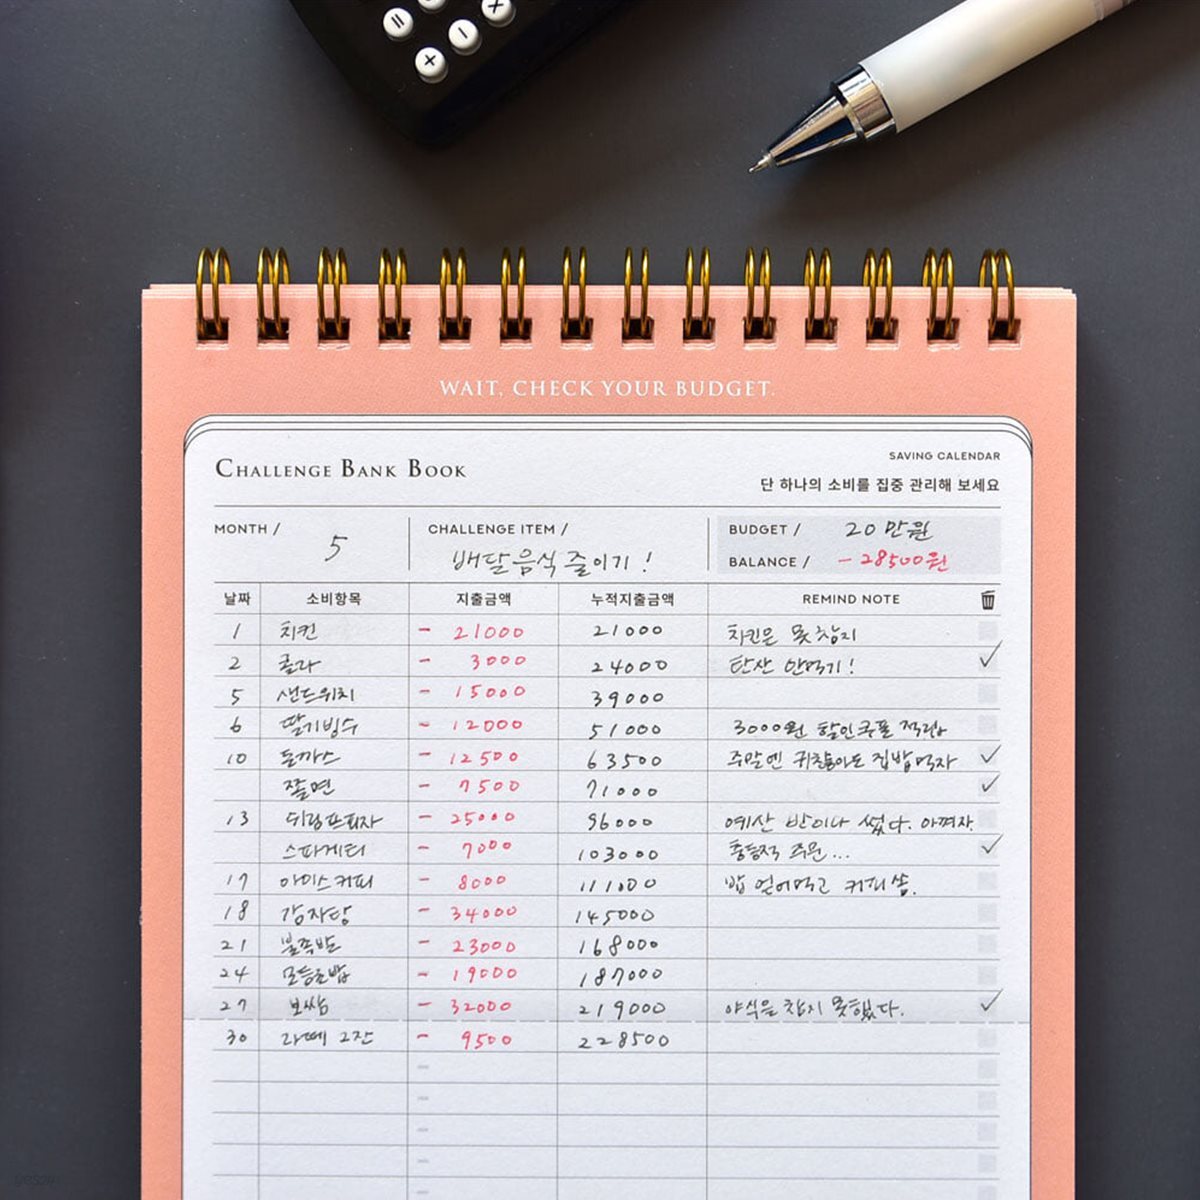 WAIT, CHECK YOUR BUDGET.
CHALLENGE BANK BOOK
SAVING CALENDAR
단 하나의 소비를 집중 관리해 보세요
MONTH / 5 CHALLENGE ITEM / 배달음식 줄이기! BUDGET / 20만원
BALANCE / -28500원
날짜 소비항목 지출금액 누적지출금액 REMIND NOTE
1 치킨 - 21000 21000 치킨은 못참지
2 콜라 - 3000 24000 탄산 안먹기!
5 샌드위치 - 15000 39000
6 딸기빙수 - 12000 51000 3000원 할인쿠폰 적립
10 돈까스 - 12500 63500 주말엔 귀찮아도 집밥먹자
쫄면 - 7500 71000
13 쉬림프피자 - 25000 96000 예산 반이나 썼다. 아껴자.
스파게티 - 7000 103000 충동적 주문...
17 아이스커피 - 8000 111000 밥 얻어먹고 커피쏨.
18 감자탕 - 34000 145000
21 불족발 - 23000 168000
24 모듬초밥 - 19000 187000
27 보쌈 - 32000 219000 야식을 참지 못했다.
30 라떼 2잔 - 9500 228500